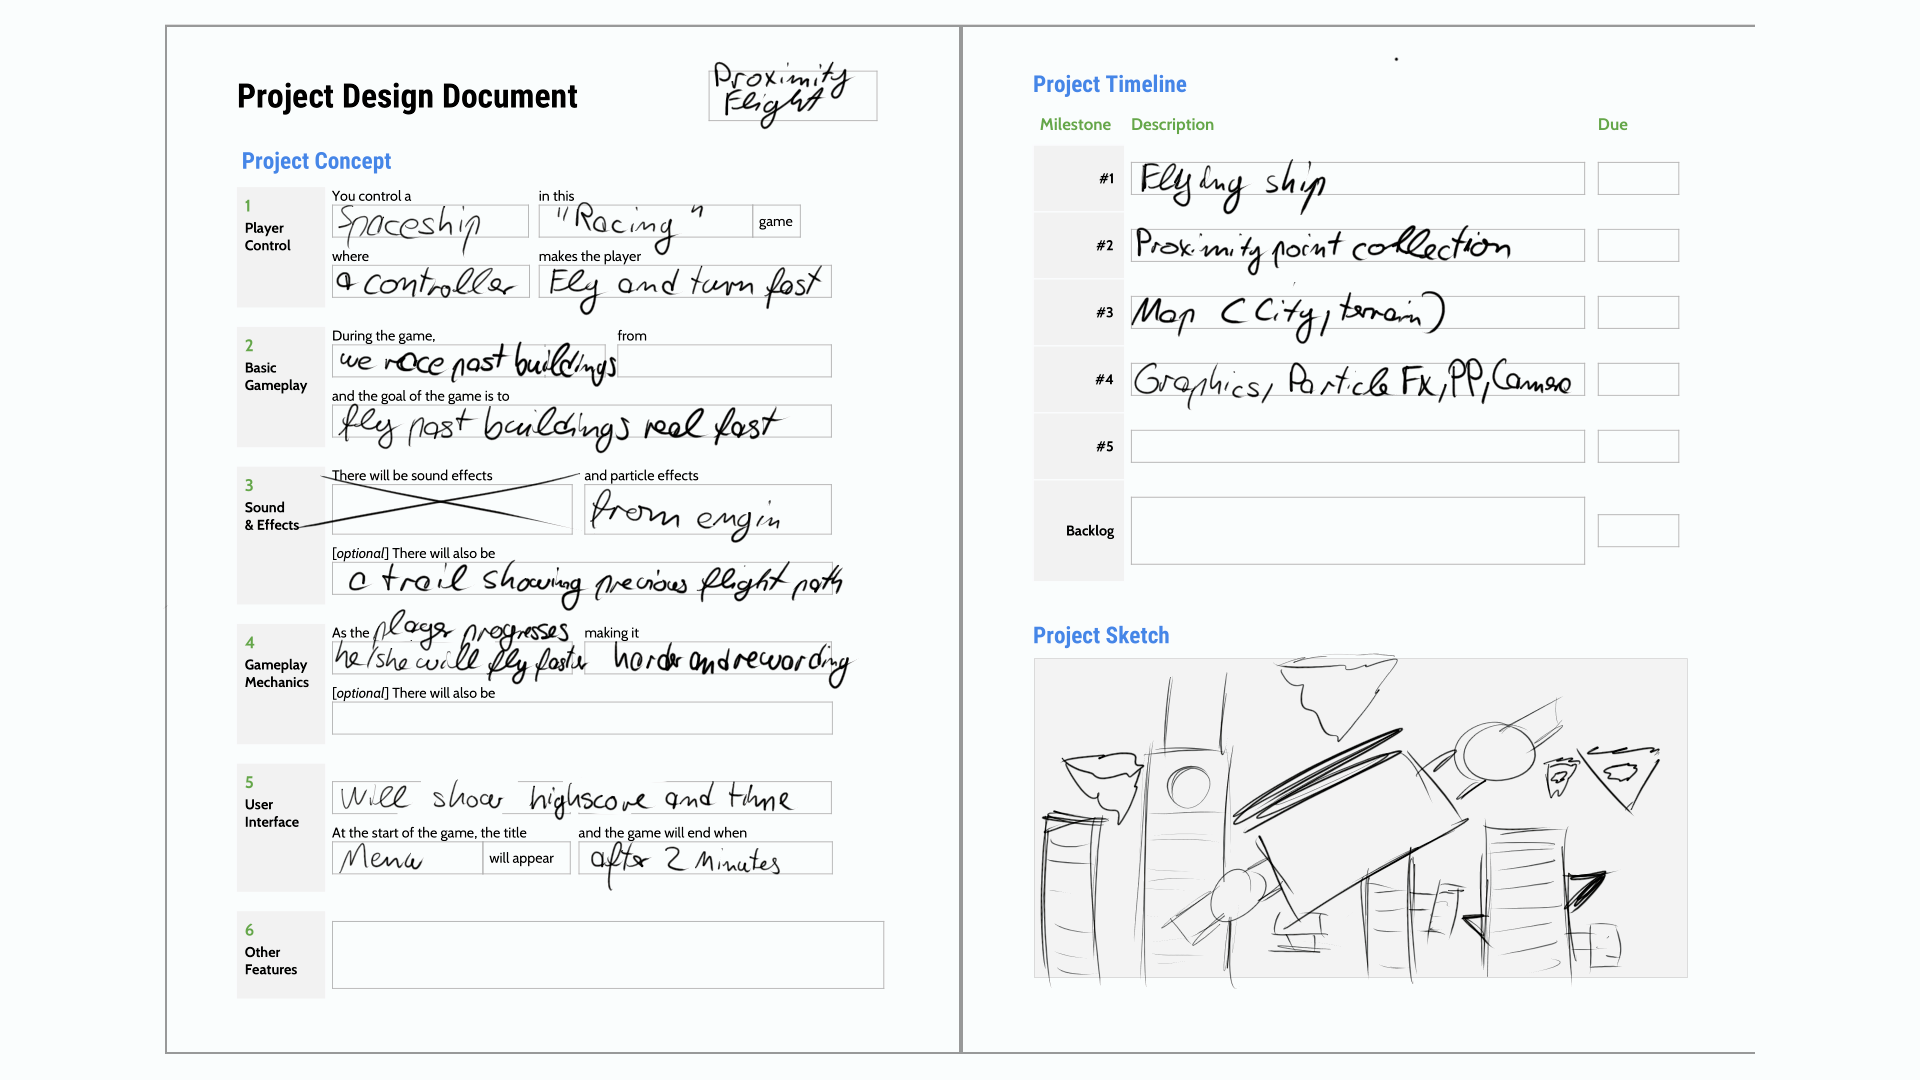 Project Design Document
Proximity
Flight
Project Concept
1
Player
Control
You control a
in this
Spaceship
"Racing"
game
where
makes the player
a controller
Fly and turn fast
2
Basic
Gameplay
During the game,
from
we race past buildings
and the goal of the game is to
fly past buildings real fast
3
Sound
& Effects
There will be sound effects
and particle effects
from engin
[optional] There will also be
a trail showing precious flight path
4
Gameplay
Mechanics
As the player progresses
making it
he/she will fly faster
harder and rewarding
[optional] There will also be
5
User
Interface
Will show highscore and time
At the start of the game, the title
and the game will end when
Menu
will appear
after 2 Minutes
6
Other
Features
Project Timeline
Milestone Description Due
#1 Flying ship
#2 Proximity point collection
#3 Map (City, terrain)
#4 Graphics, Particle Fx, PP, Camera
#5
Backlog
Project Sketch